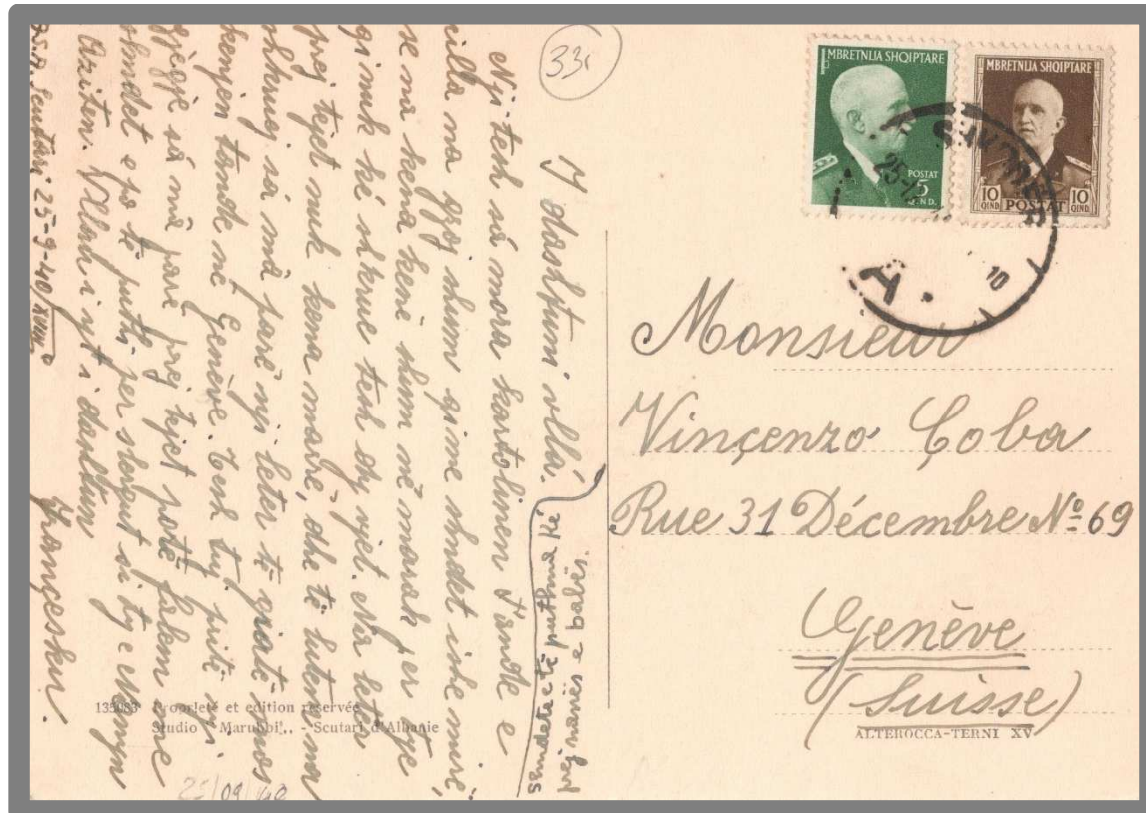 MBRETNIJA SHQIPTARE
POSTAT
5
QIND.
MBRETNIJA SHQIPTARE
10
QIND.
POSTAT
10
QIND.
10
33
Monsieur
Vinçenzo Coba
Rue 31 Décembre Nº 69
Genève
(Suisse)
ALTEROCCA-TERNI XV
I dashtuni vllá.
Nji tesh sá mora kartolinen t'ande e
cilla ma gzoj shum qi me shndet ishe mirë,
se na kena kenë shum në marak per ty se
ké shkrue tesh dy vjet. Na letër
prej tejet nuk kena marrë, dhe të lutem me
shkruej sá má parë nji letër të gjatë mos
tande në Genève. Tesh tuj pritë nji
gjegje sá má parë prej tejet potë falem me
shndet e po të puthi per si ty e
Vllau i yt i dashtun
Françesku.
Scutari 25-9-40 XVIII
e të puthna ké
prej nanës e babës.
135983 Propriété et edition réservée
Studio "Marubbi" - Scutari d'Albanie
25/09/40